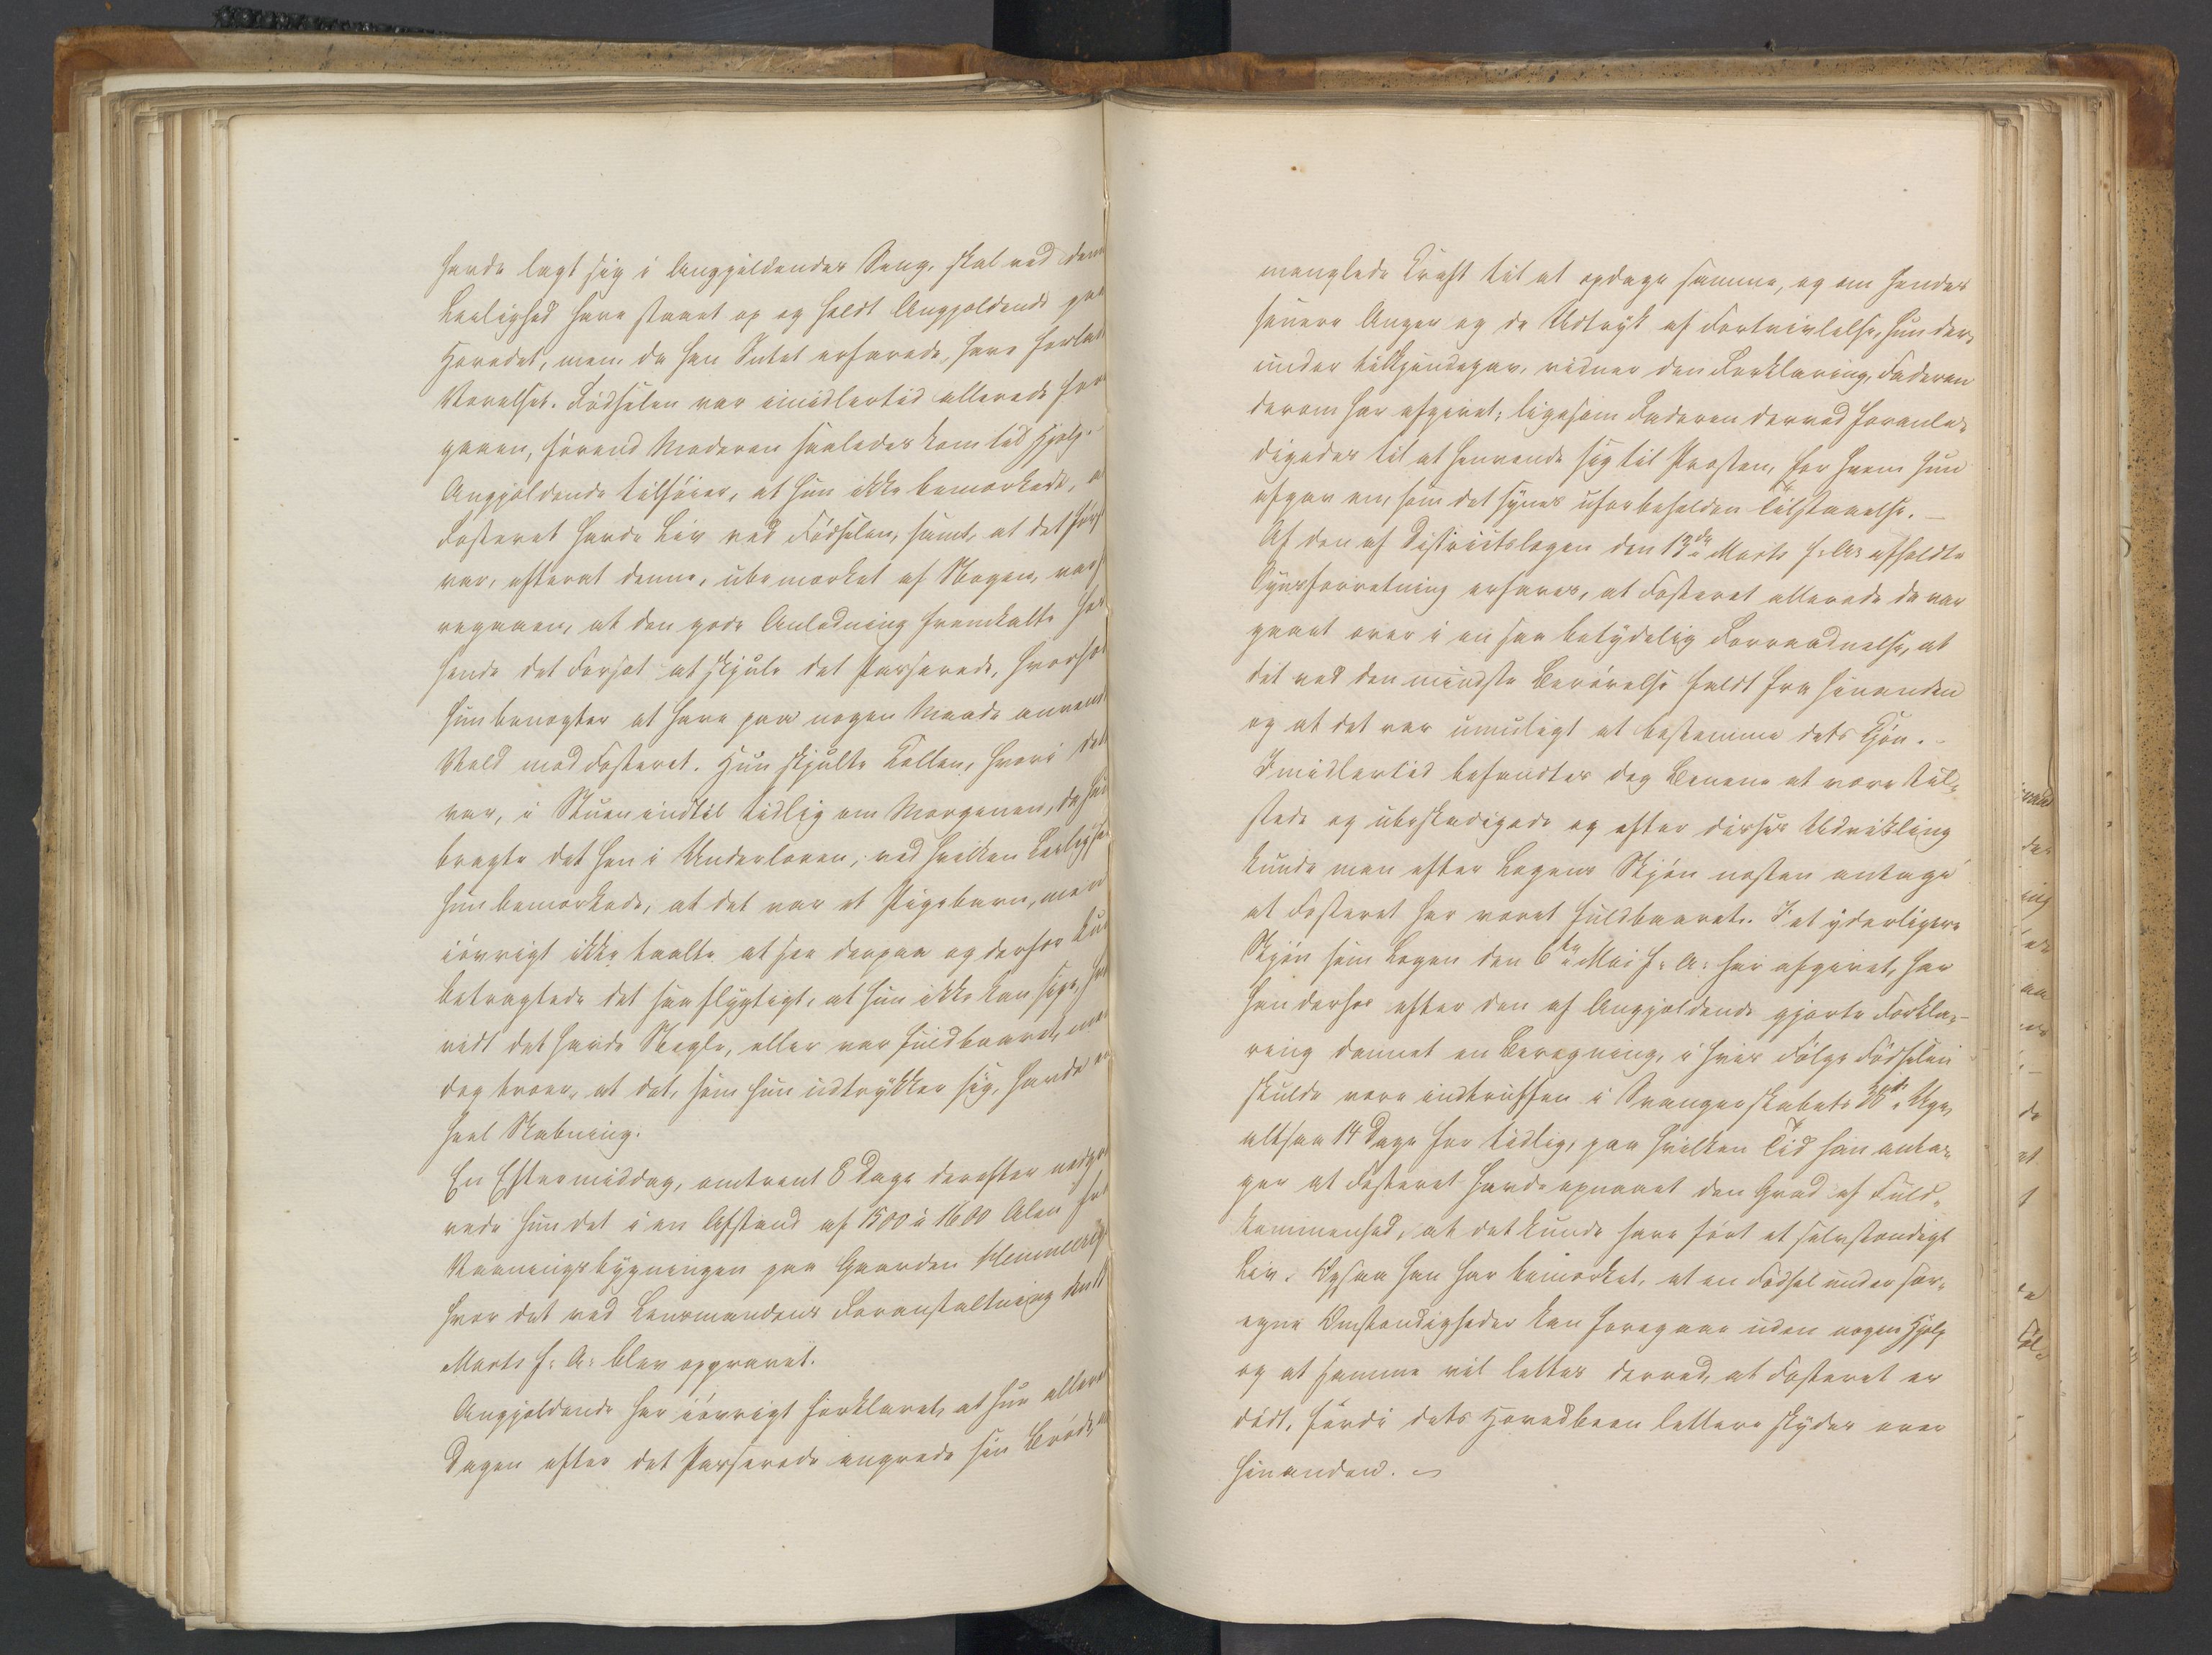 havde lagt sig i Angjældendes Seng, skal ved denn
Leilighed have staaet op og holdt Angjældende paa
Hovedet, men, da han Intet erfarede, have forladt
Værelset. Fødselen var imidlertid allerede fore
gaaen, førend Moderen saaledes kom til Hjælp.
Angjældende tilføier, at hun ikke bemærkede, at
Fosteret havde Liv ved Fødselen, samt, at det først
var, efterat denne, ubemærket af Nogen, var
regaaen, at den gode Anledning fremkaldte hos
hende det Forsæt at skjule det Passerede, hvorhos
hun benægter at have paa nogen Maade anvendt
Vold mod Fosteret. Hun skjulte Kollen, hvori det
var, i Stuen indtil tidlig om Morgenen, da hun
bragte det hen i Underloven, ved hvilken Leilighed
hun bemærkede, at det var et Pigebarn, men
iøvrigt ikke taalte at see derpaa og derfor kun
betragtede det saa flygtigt, at hun ikke kan sige, hvor
vidt det havde Negle, eller var fuldbaaret, men
dog troer, at det, som hun udtrykker sig, havde en
heel Skabning.
En Eftermiddag, omtrent 8 Dage derefter nedgra
vede hun det i en Afstand af 1500 à 1600 Alen fra
Vaaningsbygningen paa Gaarden
hvor det ved Lensmandens Foranstaltning den
Marts f: A: blev opgravet.
Angjældende har iøvrigt forklaret, at hun allere
Dagen efter det Passerede angrede sin Brøde,
manglede Kraft til at opdage samme, og om hendes
senere Anger og de Udtryk af Fortvivlelse, hun der-
under tilkjendegav, vidner den Forklaring, Faderen
derom har afgivet; ligesom Faderen derved foranle-
digedes til at henvende sig til Præsten, for hvem hun
afgav en, som det synes uforbeholden Tilstaaelse. –
Af den af Districtslægen den 13de Marts f: A: afholdte
Synsforretning erfares, at Fosteret allerede da var
gaaet over i en saa betydelig Forraadnelse, at
det ved den mindste Berørelse faldt fra hinanden
og at det var umuligt at bestemme dets Kjøn. –
Imidlertid befandtes dog Benene at være til-
stede og ubeskadigede og efter disses Udvikling
kunde man efter Lægens Skjøn næsten antage
at Fosteret har været fuldbaaret. I et yderligere
Skjøn som Lægen den 6te Mai f: A: har afgivet, har
han derhos efter den af Angjældende gjorte Forkla-
ring dannet en Beregning, i hvis Følge Fødselen
skulde være indtruffen i Svangerskabets 38de Uge,
altsaa 14 Dage for tidlig, paa hvilken Tid han anta-
ger at Fosteret havde opnaaet den Grad af Fuld-
kommenhed, at det kunde have ført et selvstændigt
Liv. Ogsaa han har bemærket, at en Fødsel under sær-
egne Omstændigheder kan foregaae uden nogen Hjælp
og at samme vil lettes derved, at Fosteret er
dødt, fordi dets Hovedbeen lettere skyder over
hinanden.